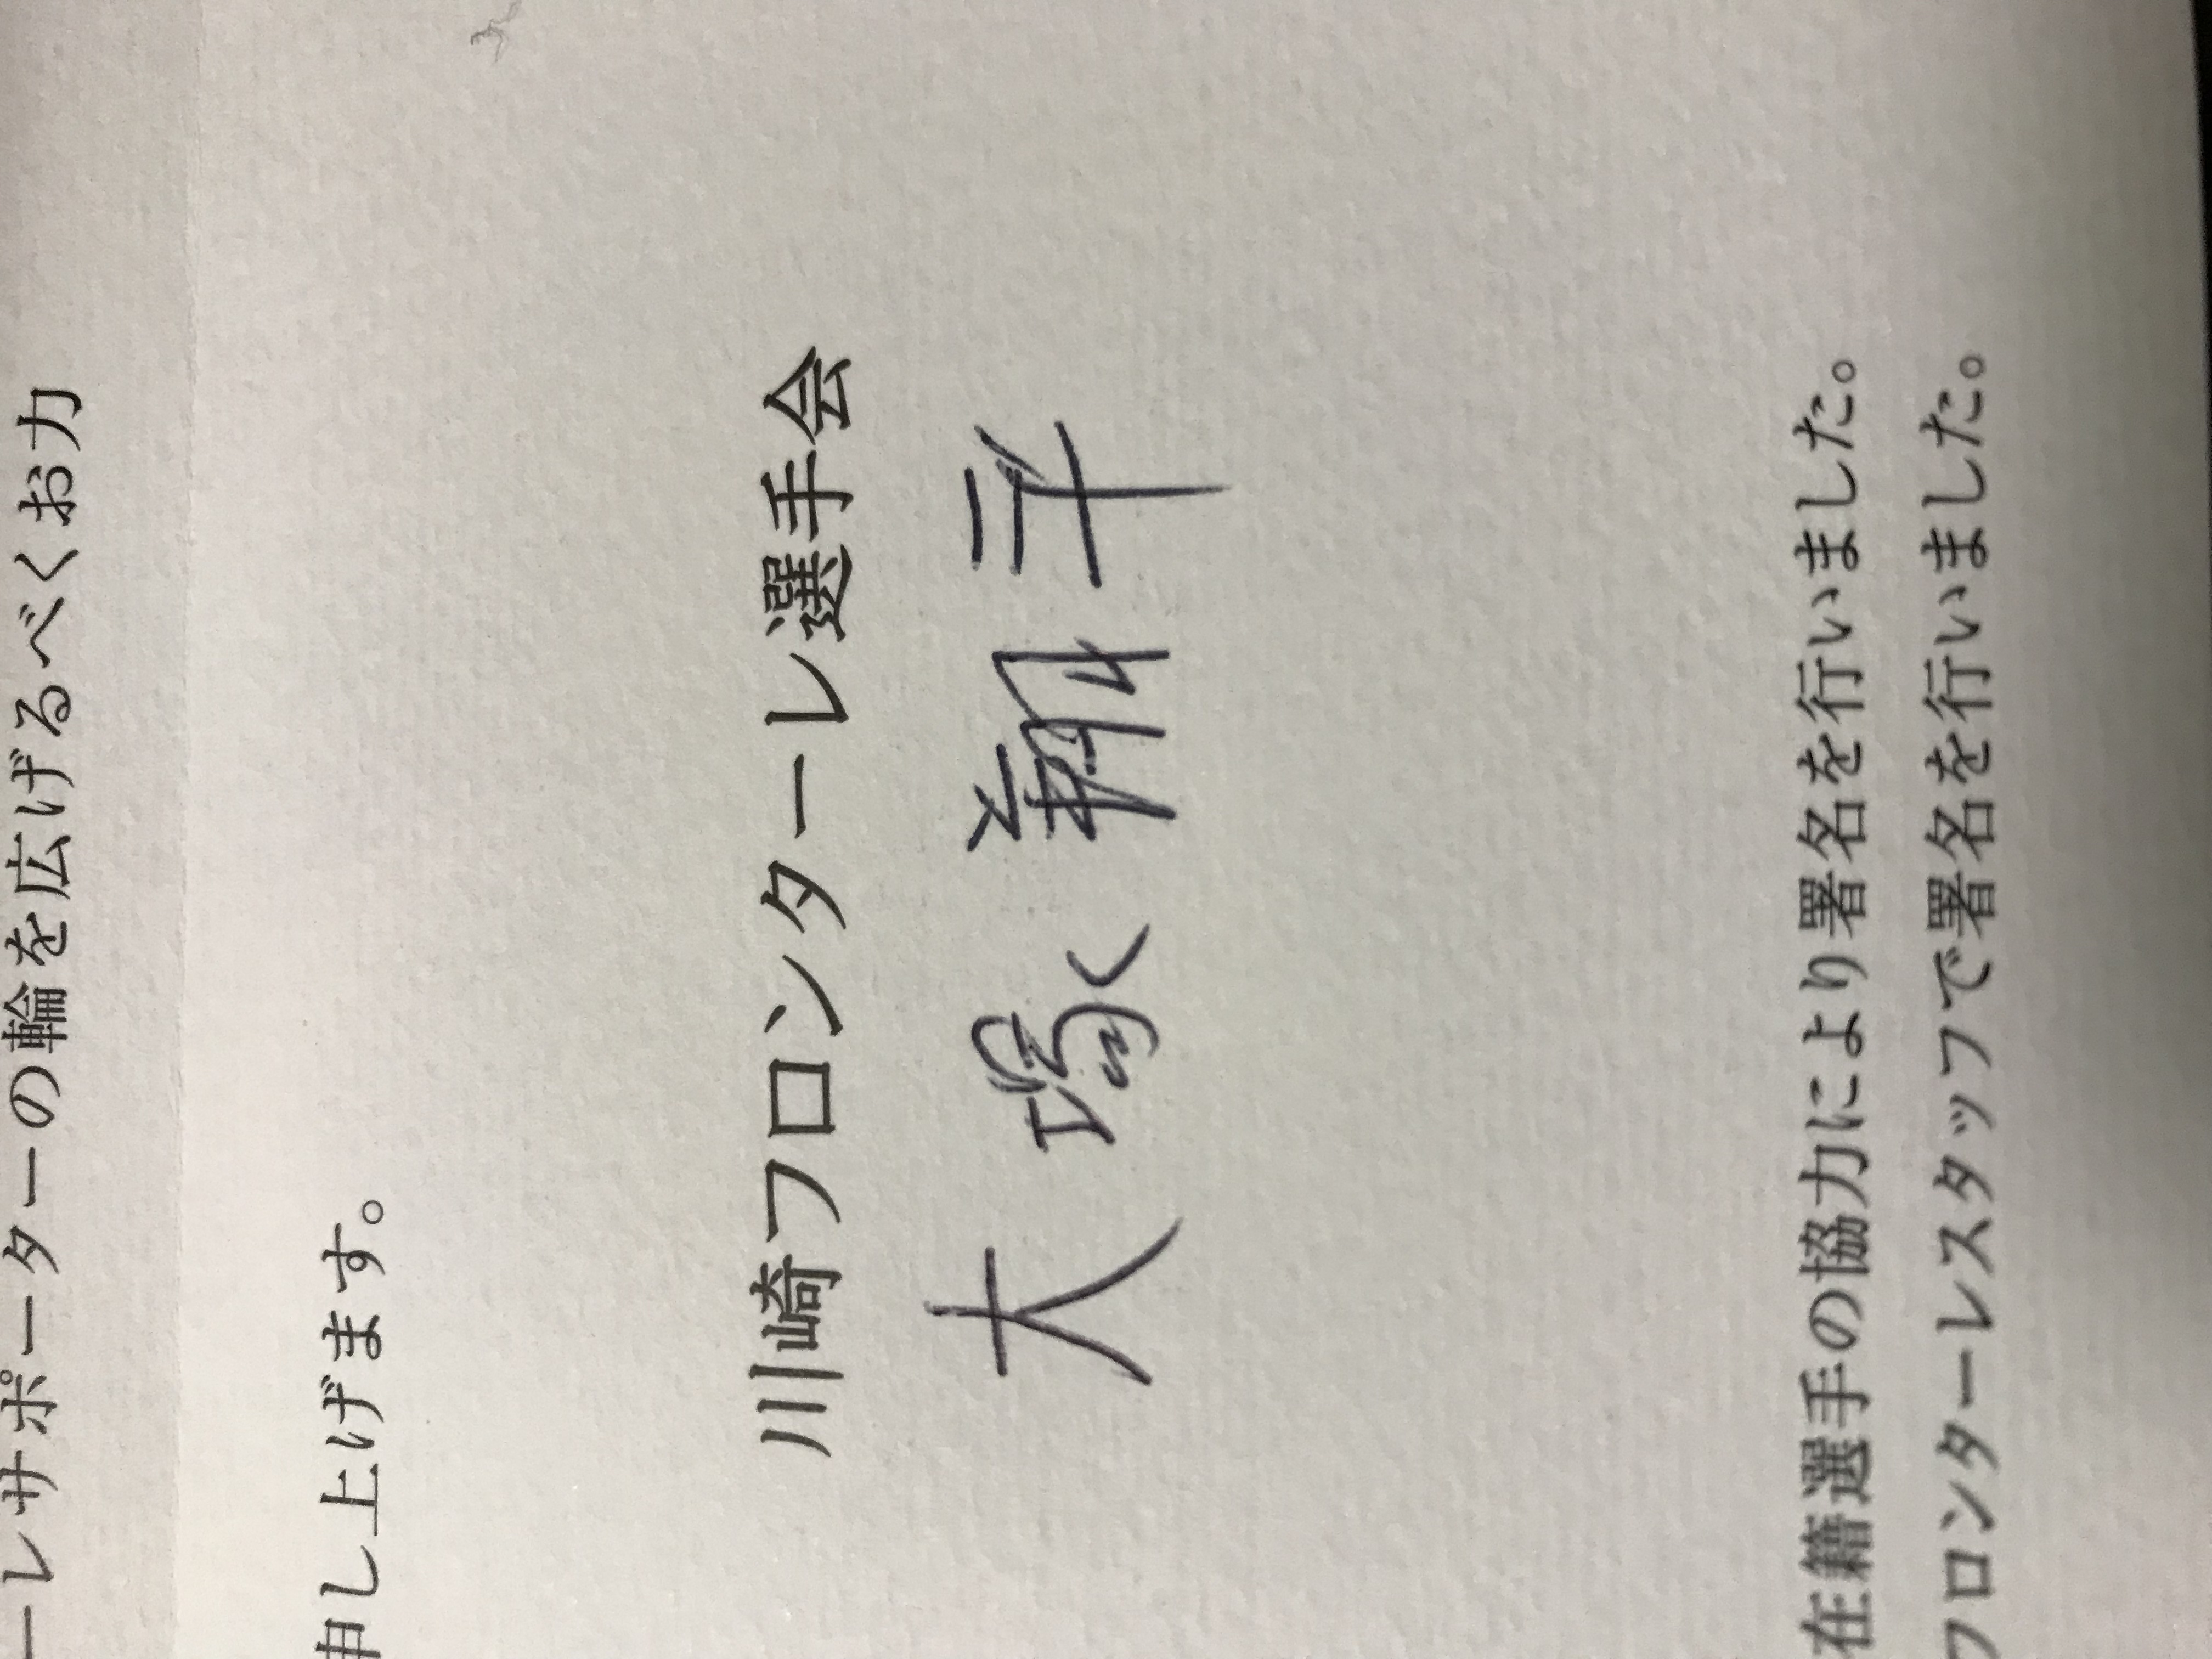 ーレサポーターの輪を広げるべくお力
申し上げます。
川崎フロンターレ選手会
大塚 翔平
在籍選手の協力により署名を行いました。
フロンターレスタッフで署名を行いました。